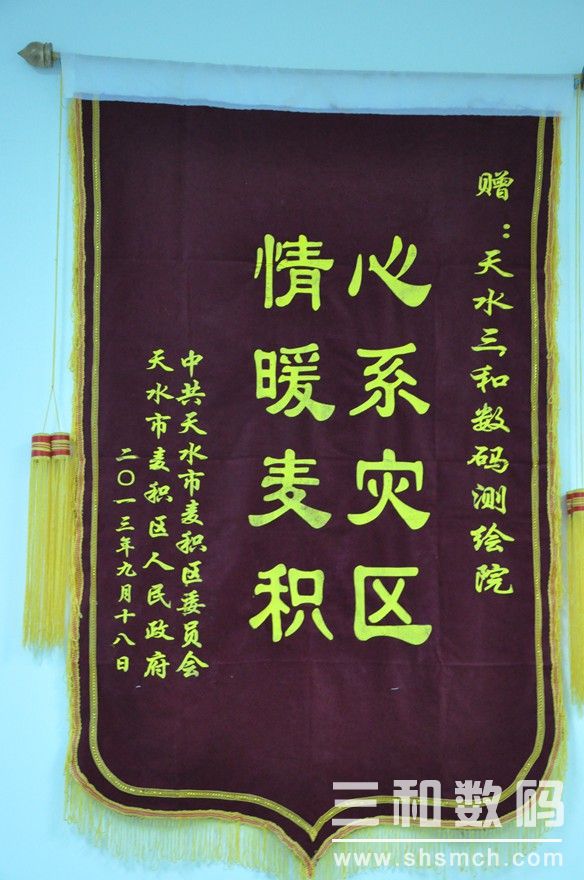 赠：天水三和数码测绘院
心系灾区
情暖麦积
中共天水市麦积区委员会
天水市麦积区人民政府
二〇一三年九月十八日
三和数码
www.shsmch.com